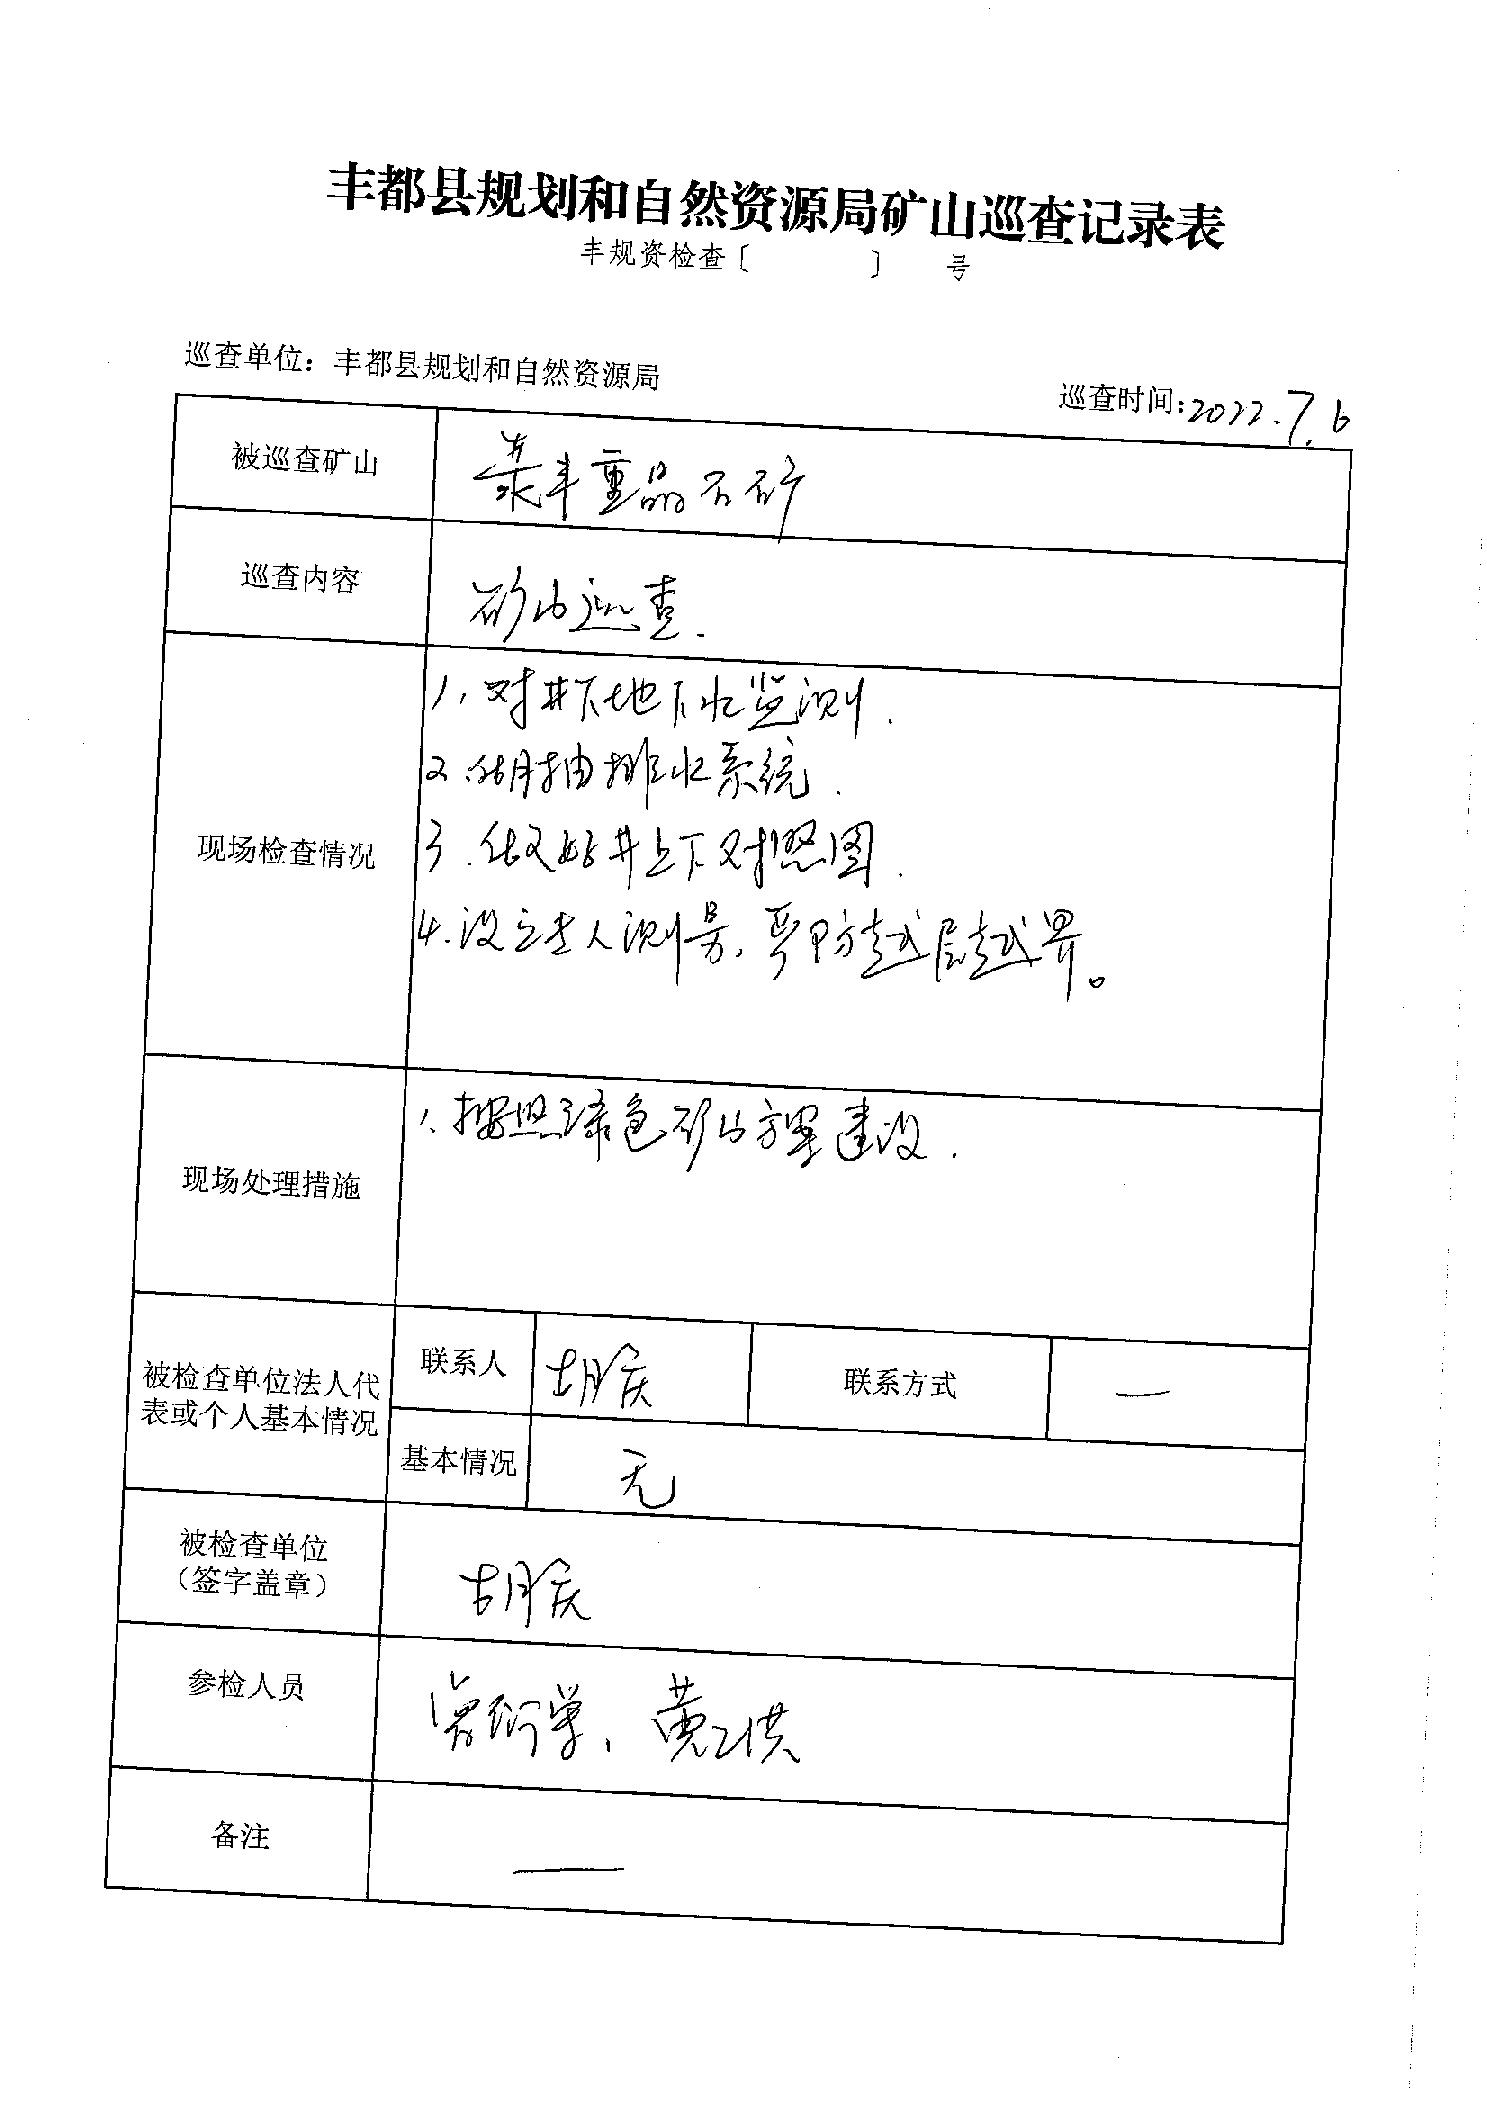 丰都县规划和自然资源局矿山巡查记录表
丰规资检查〔 〕 号
巡查单位：丰都县规划和自然资源局
巡查时间：2022.7.6
被巡查矿山 丰重晶石矿
巡查内容 矿山巡查.
现场检查情况
1、对井下地下水监测.
2. 抽排水系统.
3. 做好井上下对照图.
4. 设立专人测量，严防越层越界。
现场处理措施
1、按照绿色矿山方案建设.
被检查单位法人代
表或个人基本情况
联系人 胡庆 联系方式 —
基本情况 无
被检查单位
（签字盖章） 胡庆
参检人员 学、黄洪
备注 —